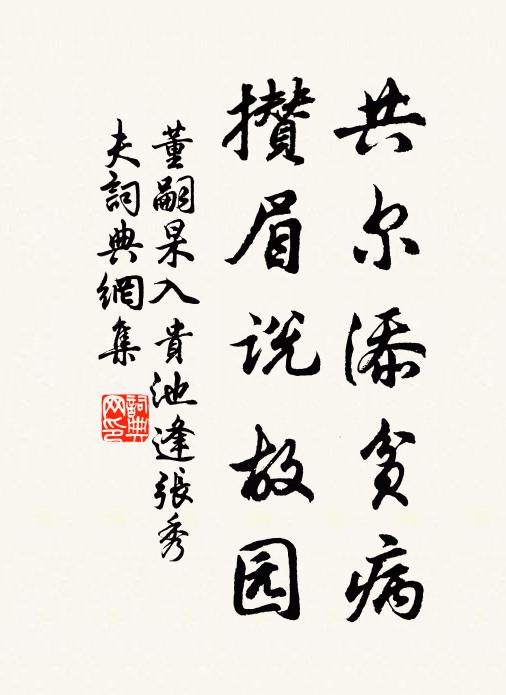 共尔添贫病
攒眉说故园
董嗣杲入貴池逢張秀
夫詞典網集
詞典
网印